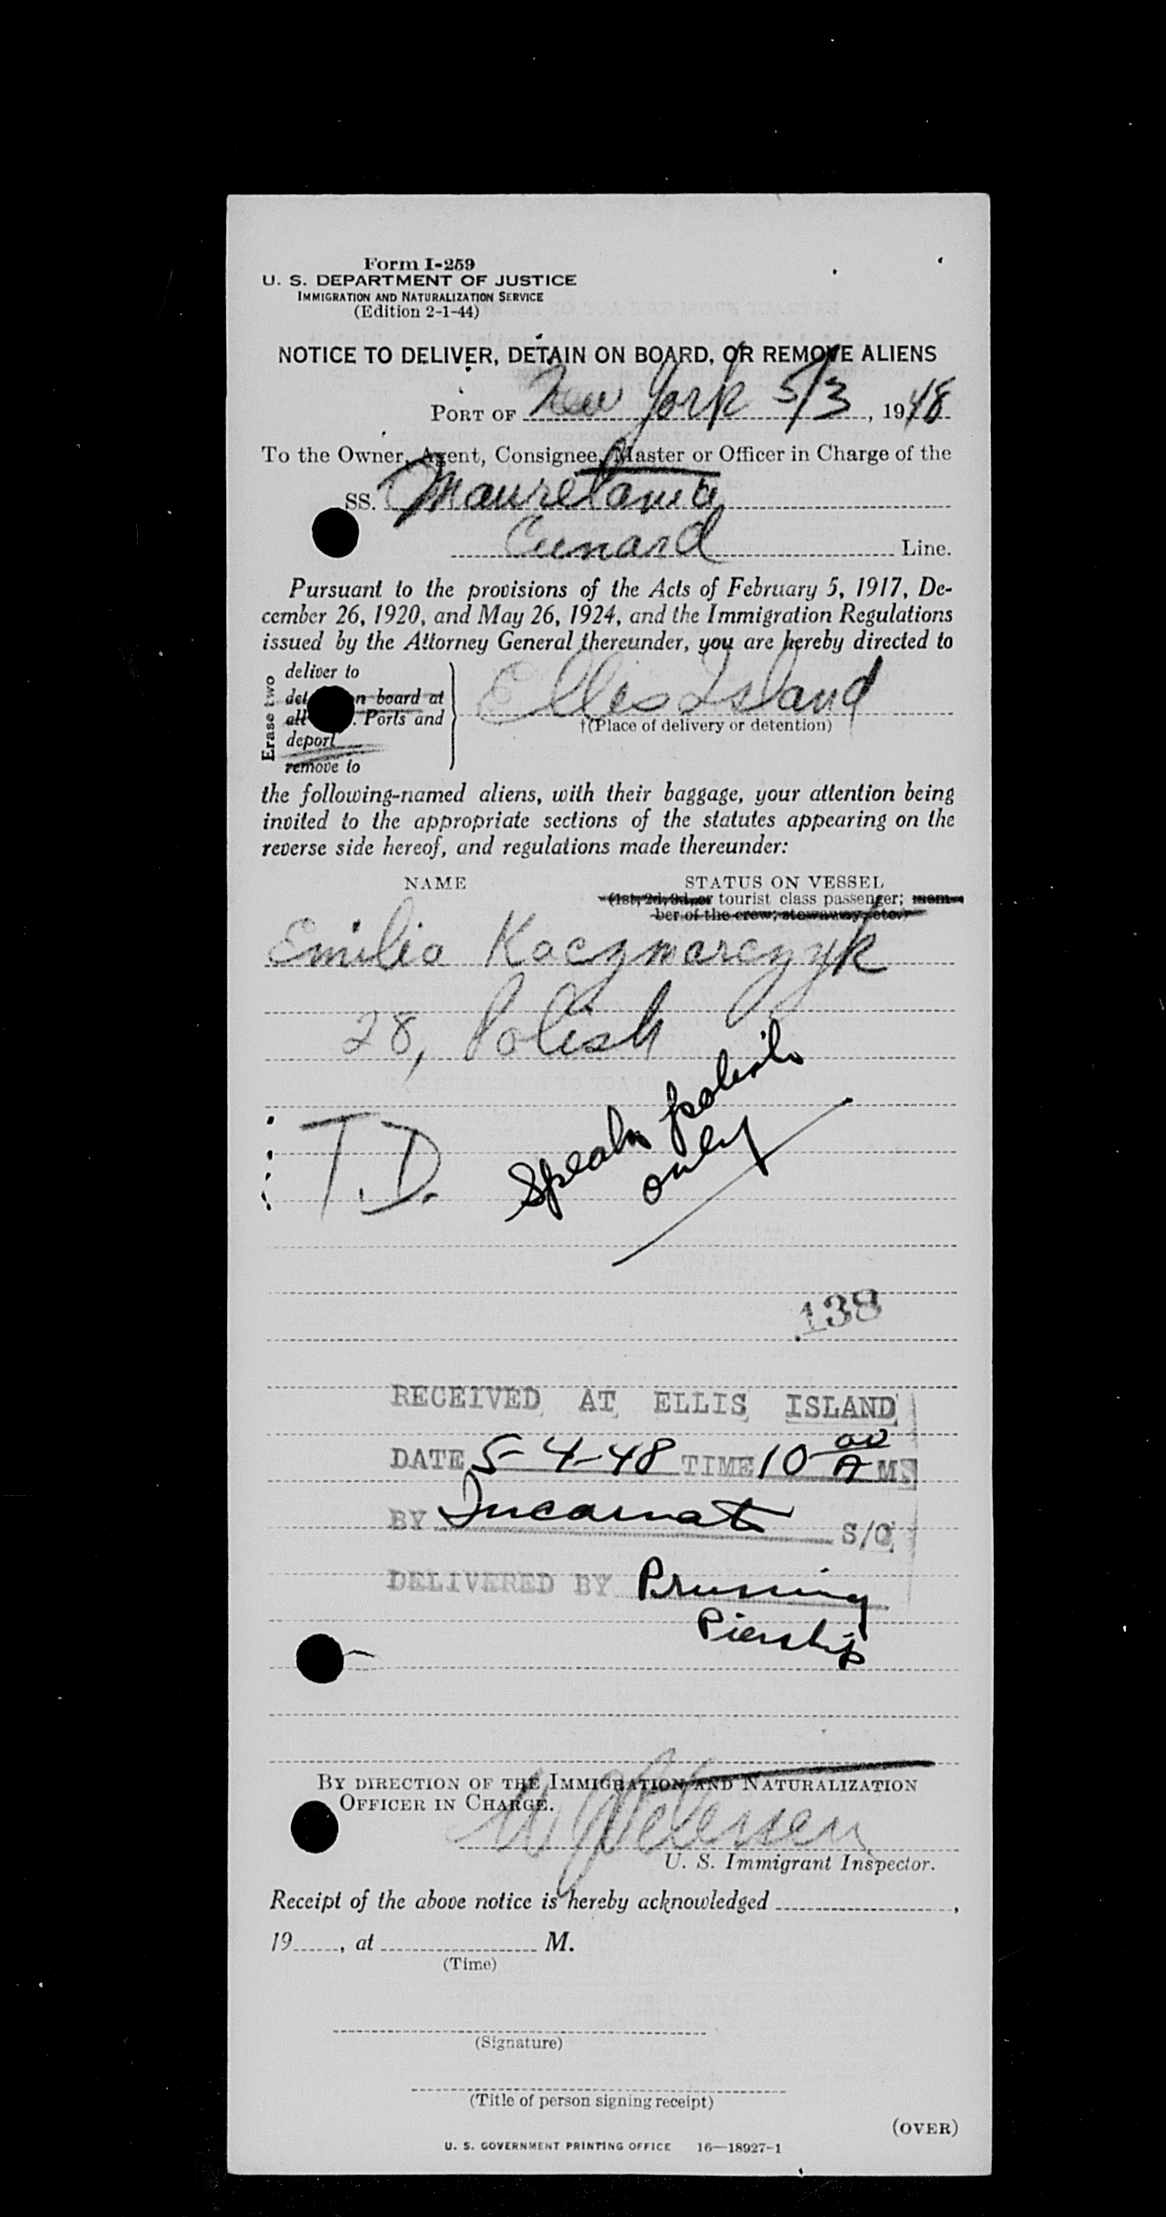 Form I-259
U. S. DEPARTMENT OF JUSTICE
IMMIGRATION AND NATURALIZATION SERVICE
(Edition 2-1-44)
NOTICE TO DELIVER, DETAIN ON BOARD, OR REMOVE ALIENS
PORT OF New York 5/3, 1948
To the Owner, Agent, Consignee, Master or Officer in Charge of the
SS. Mauretania
Cunard Line.
Pursuant to the provisions of the Acts of February 5, 1917, De-
cember 26, 1920, and May 26, 1924, and the Immigration Regulations
issued by the Attorney General thereunder, you are hereby directed to
Erase two
deliver to
det n board at
all . Ports and
deport
remove to
Ellis Island
†(Place of delivery or detention)
the following-named aliens, with their baggage, your attention being
invited to the appropriate sections of the statutes appearing on the
reverse side hereof, and regulations made thereunder:
NAME STATUS ON VESSEL
(1st, 2d, 3d, or tourist class passenger; mem-
ber of the crew; stowaway, etc.)
Emilia Kaczmarczyk
28, Polish
T.D.
Speaks polish
only
138
RECEIVED AT ELLIS ISLAND
DATE 5-4-48 TIME 10 00 A MS
BY Incarnato S/O
DELIVERED BY Pruning
Pership
BY DIRECTION OF THE IMMIGRATION AND NATURALIZATION
OFFICER IN CHARGE.
Petersen
U. S. Immigrant Inspector.
Receipt of the above notice is hereby acknowledged ,
19 , at M.
(Time)
(Signature)
(Title of person signing receipt)
(OVER)
U. S. GOVERNMENT PRINTING OFFICE 16—18927-1